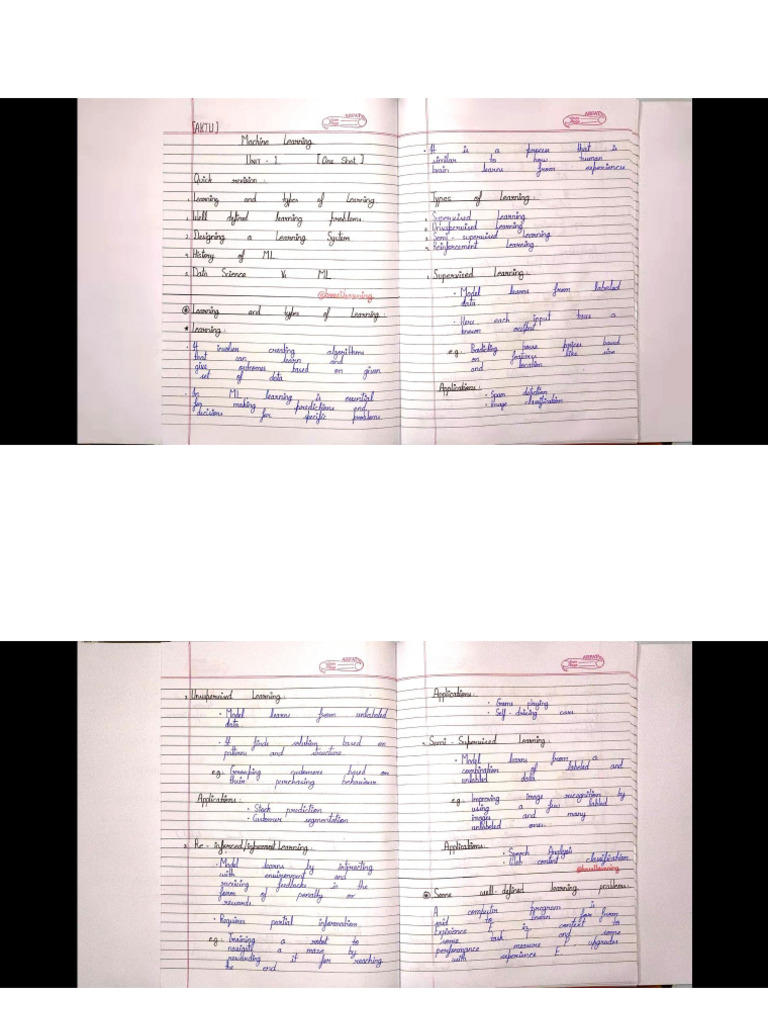 [AKTU]
Machine Learning
Unit - 1 [One Shot]
Quick revision:
1. Learning and types of Learning.
2. Well defined learning problems.
3. Designing a Learning System
4. History of ML
5. Data Science Vs ML
Learning and types of Learning:
★ Learning:
• It involves creating algorithms
that can learn and
give outcomes based on given
set of data
• In ML learning is essential
for making predictions and
decisions for specific problems.
• It is a process that is
similar to how human
brain learns from experiences
Types of Learning:
1. Supervised Learning
2. Unsupervised Learning
3. Semi-supervised Learning
4. Reinforcement Learning
1. Supervised Learning:
• Model learns from labeled
data.
• Here each input has a
known output
e.g: Predicting house prices based
on features like size
and location
Applications:
• Spam detection
• Image classification
2. Unsupervised Learning:
• Model learns from unlabeled
data.
• It finds solution based on
patterns and structure.
e.g: Grouping customers based on
their purchasing behaviour
Applications:
• Stock prediction
• Customer segmentation
3. Re-inforced/inforcement Learning:
• Model learns by interacting
with environment and
receiving feedbacks in the
form of penalty or
rewards.
• Requires partial information
e.g: Training a robot to
navigate a maze by
rewarding it for reaching
the end.
Applications:
• Game playing
• Self-driving cars
4. Semi-Supervised Learning:
• Model learns from a
combination of labeled and
unlabled data
e.g: Improving image recognition by
using a few labled
images and many
unlabeled ones.
Applications:
• Speech Analysis
• Web content classification
Some well-defined learning problems:
A computer program is
said to learn from
Experience E in context to
some task and some
performance measure P upgrades
with experience E.